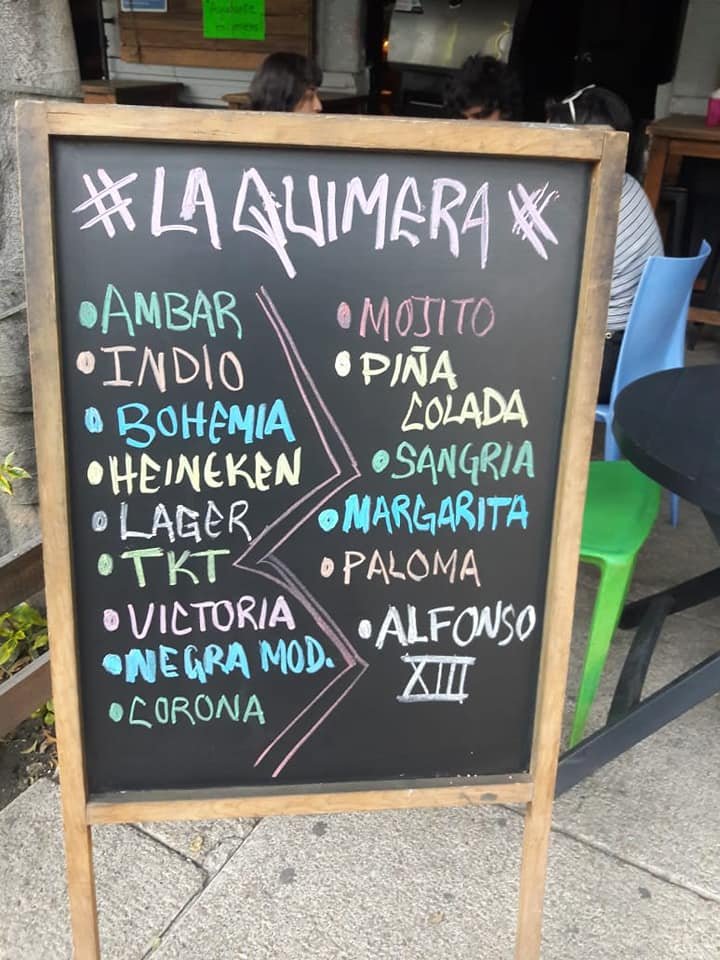 #LA QUIMERA#
•AMBAR
•INDIO
•BOHEMIA
•HEINEKEN
•LAGER
•TKT
•VICTORIA
•NEGRA MOD.
•CORONA
•MOJITO
•PIÑA
COLADA
•SANGRIA
•MARGARITA
•PALOMA
•ALFONSO
XIII